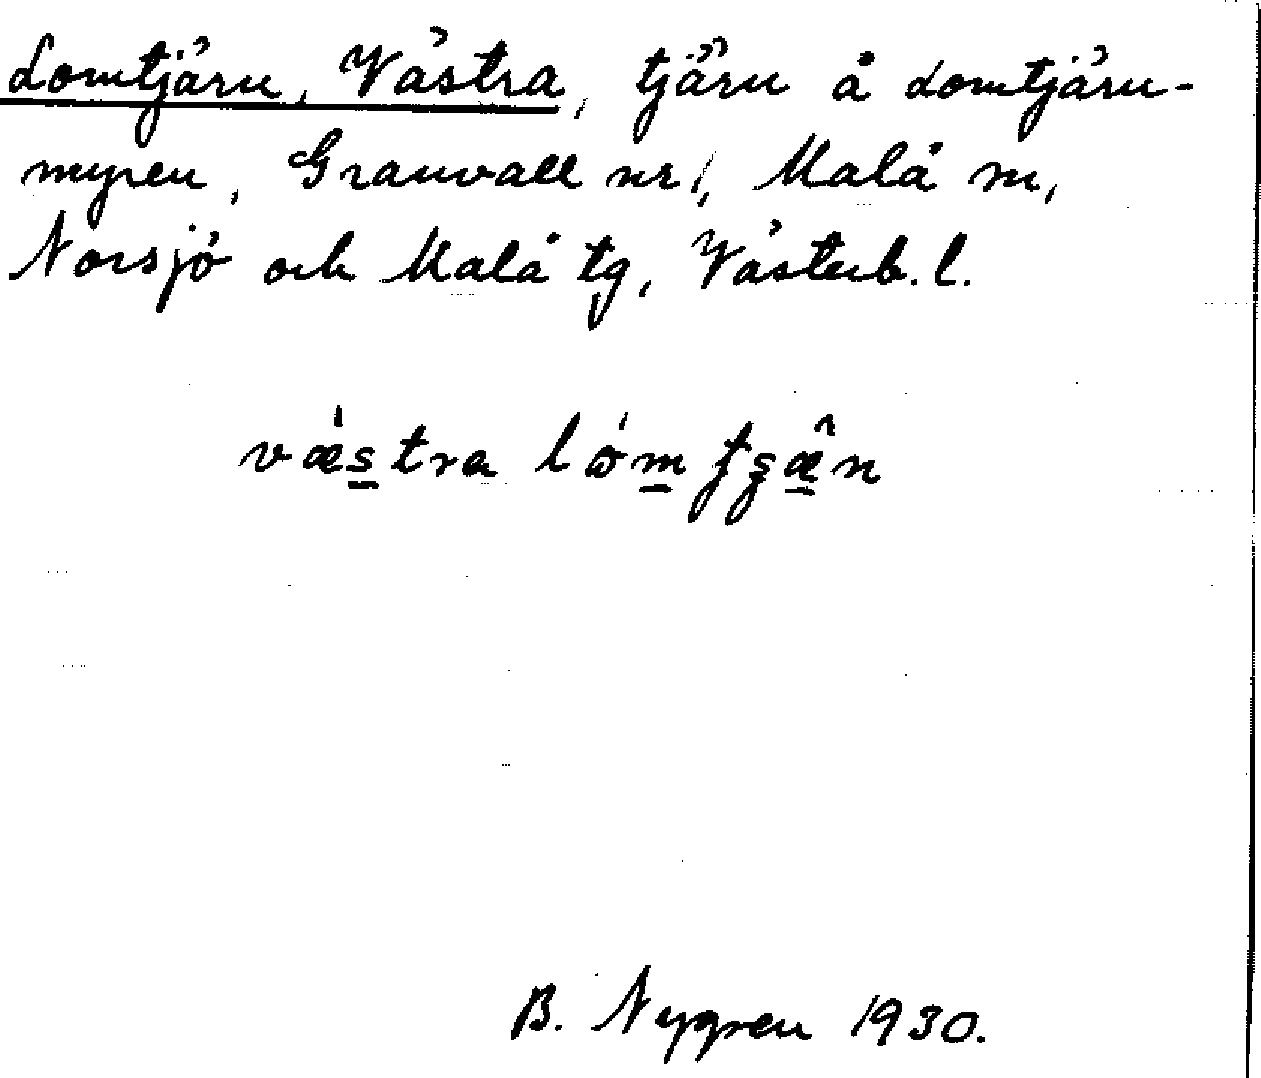 Lomtjärn, Västra, tjärn å Lomtjärn-
myren, Granvall nr 1, Malå sn,
Norsjö och Malå tg, Västerb. l.
væ̀stra lòm tʂæ̂n
B. Nygren 1930.